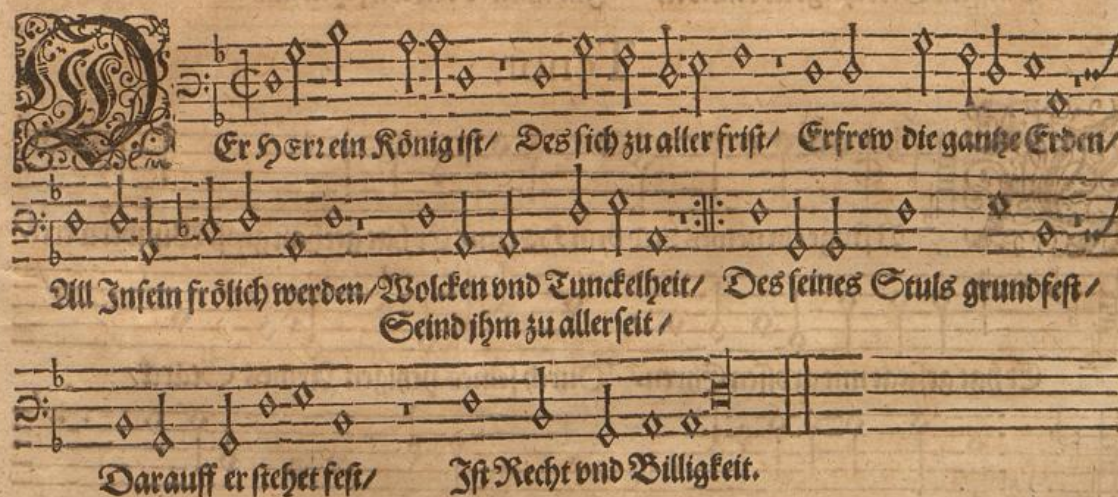 DEr HErr ein König ist/ Des sich zu aller frist/ Erfrew die gantze Erden/
All Inseln frölich werden/ Wolcken vnd Tunckelheit/ Des seines Stuls grundfest/
Seind jhm zu allerseit/
Darauff er stehet fest/ Ist Recht vnd Billigkeit.